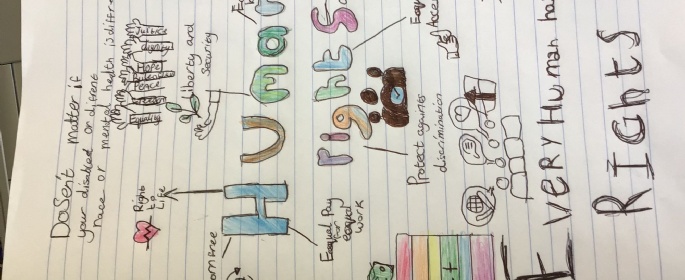 Dosen't matter if
your disabled or difrent
race or mental health is differ
Justice
dignity
Hope
Peace
Freedom
Equality
Liberty and
Security
Right
to
Life
Human
rights
Equal Pay
for
equal
work
Protect againts
discrimination
Every Human ha
RIGhts